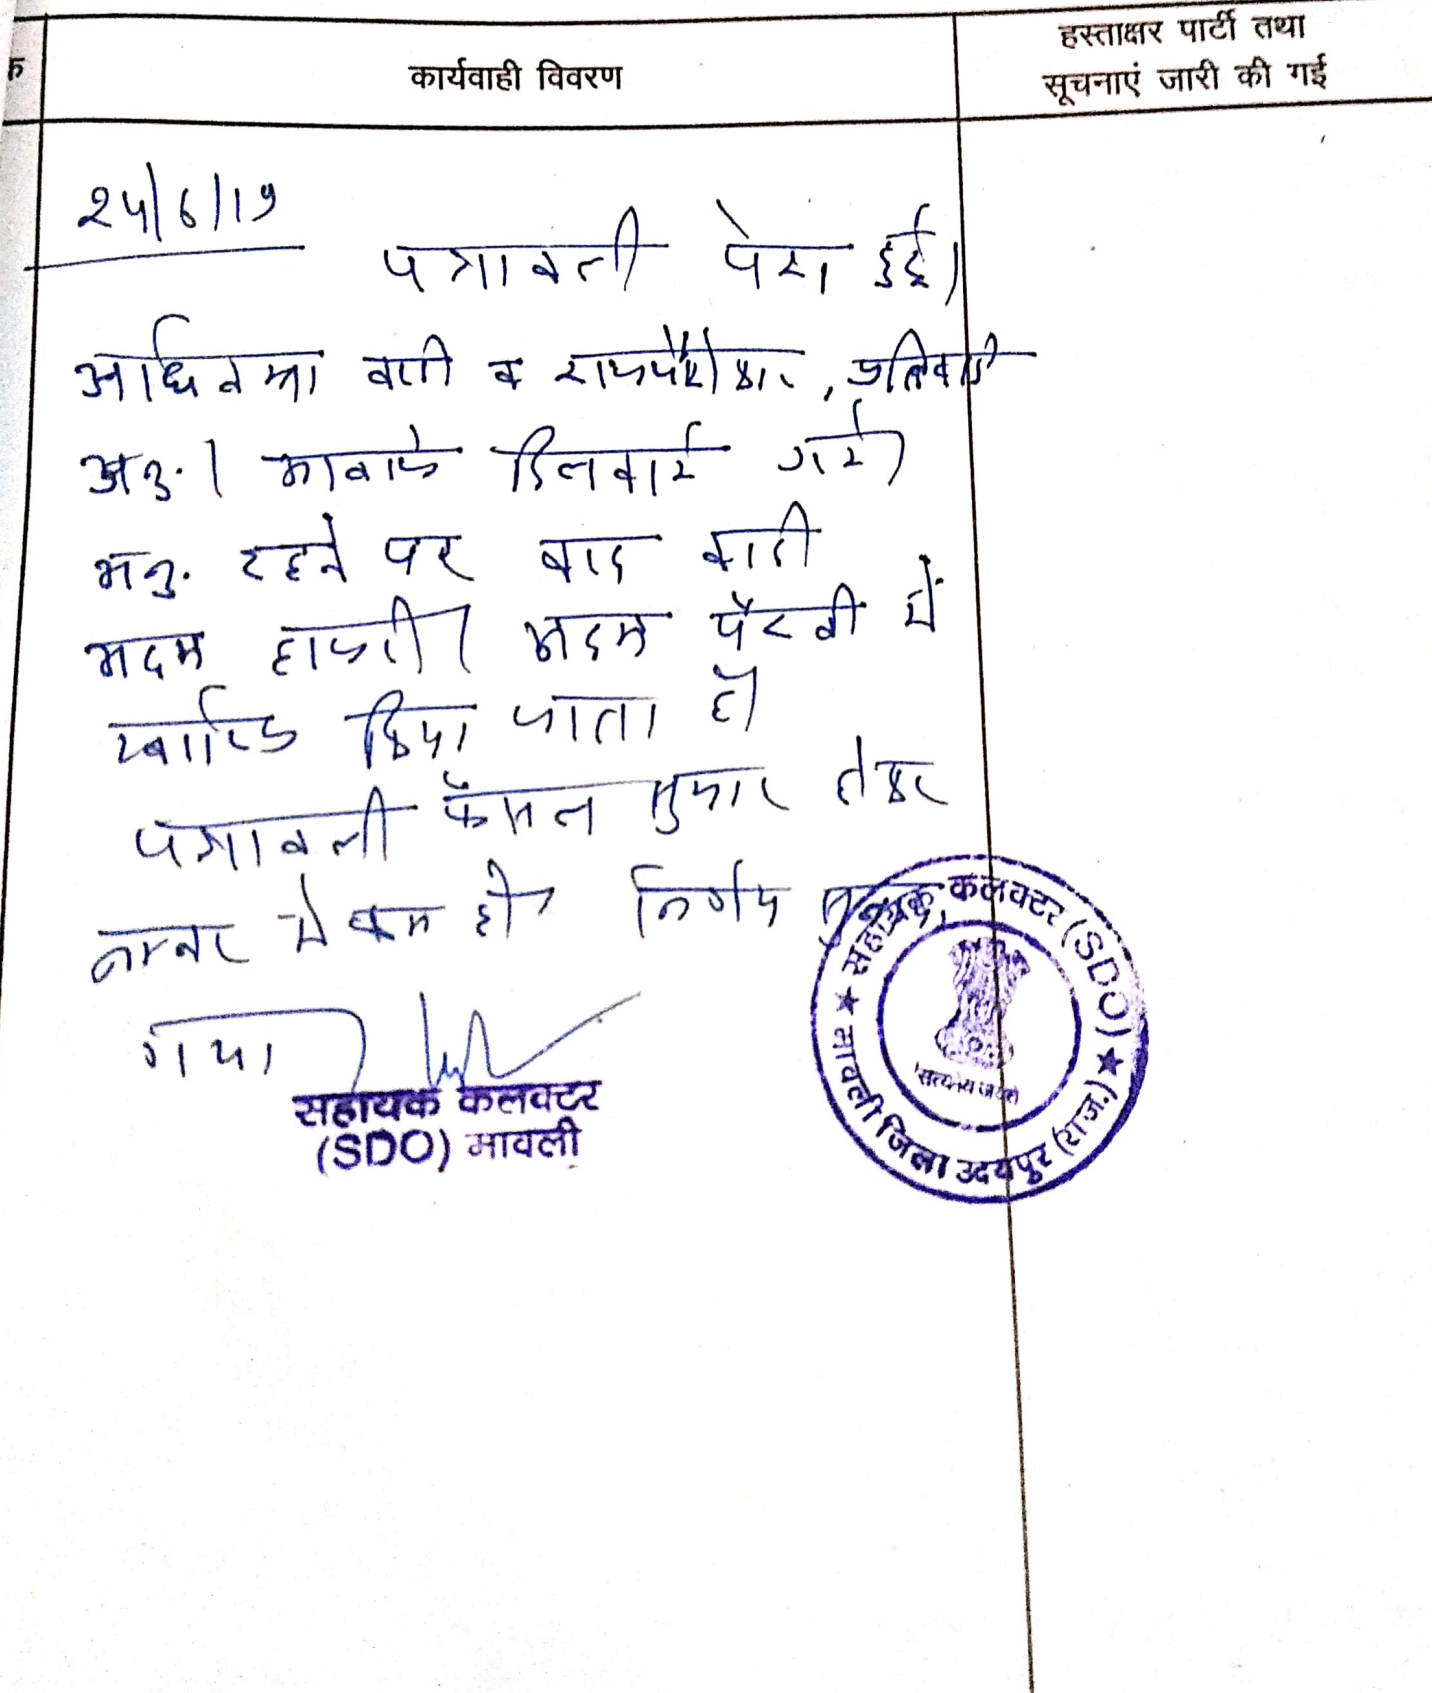 क
कार्यवाही विवरण
हस्ताक्षर पार्टी तथा
सूचनाएं जारी की गई
25/6/19
पत्रावली पेश हुई।
अधिवक्ता वादी व राजपैरोकार, प्रतिवादी
अनु.। आवाजे दिलवाई गई।
अनु. रहने पर वाद वादी
अदम हाजरी। अदम पैरवी में
खारिज किया जाता है।
पत्रावली फैसल शुमार होकर
नम्बर से कम हो। निर्णय सुनाया
गया।
सहायक कलक्टर
(SDO) मावली
सहायक कलक्टर (SDO)
मावली जिला उदयपुर (राज.)
सत्यमेव जयते